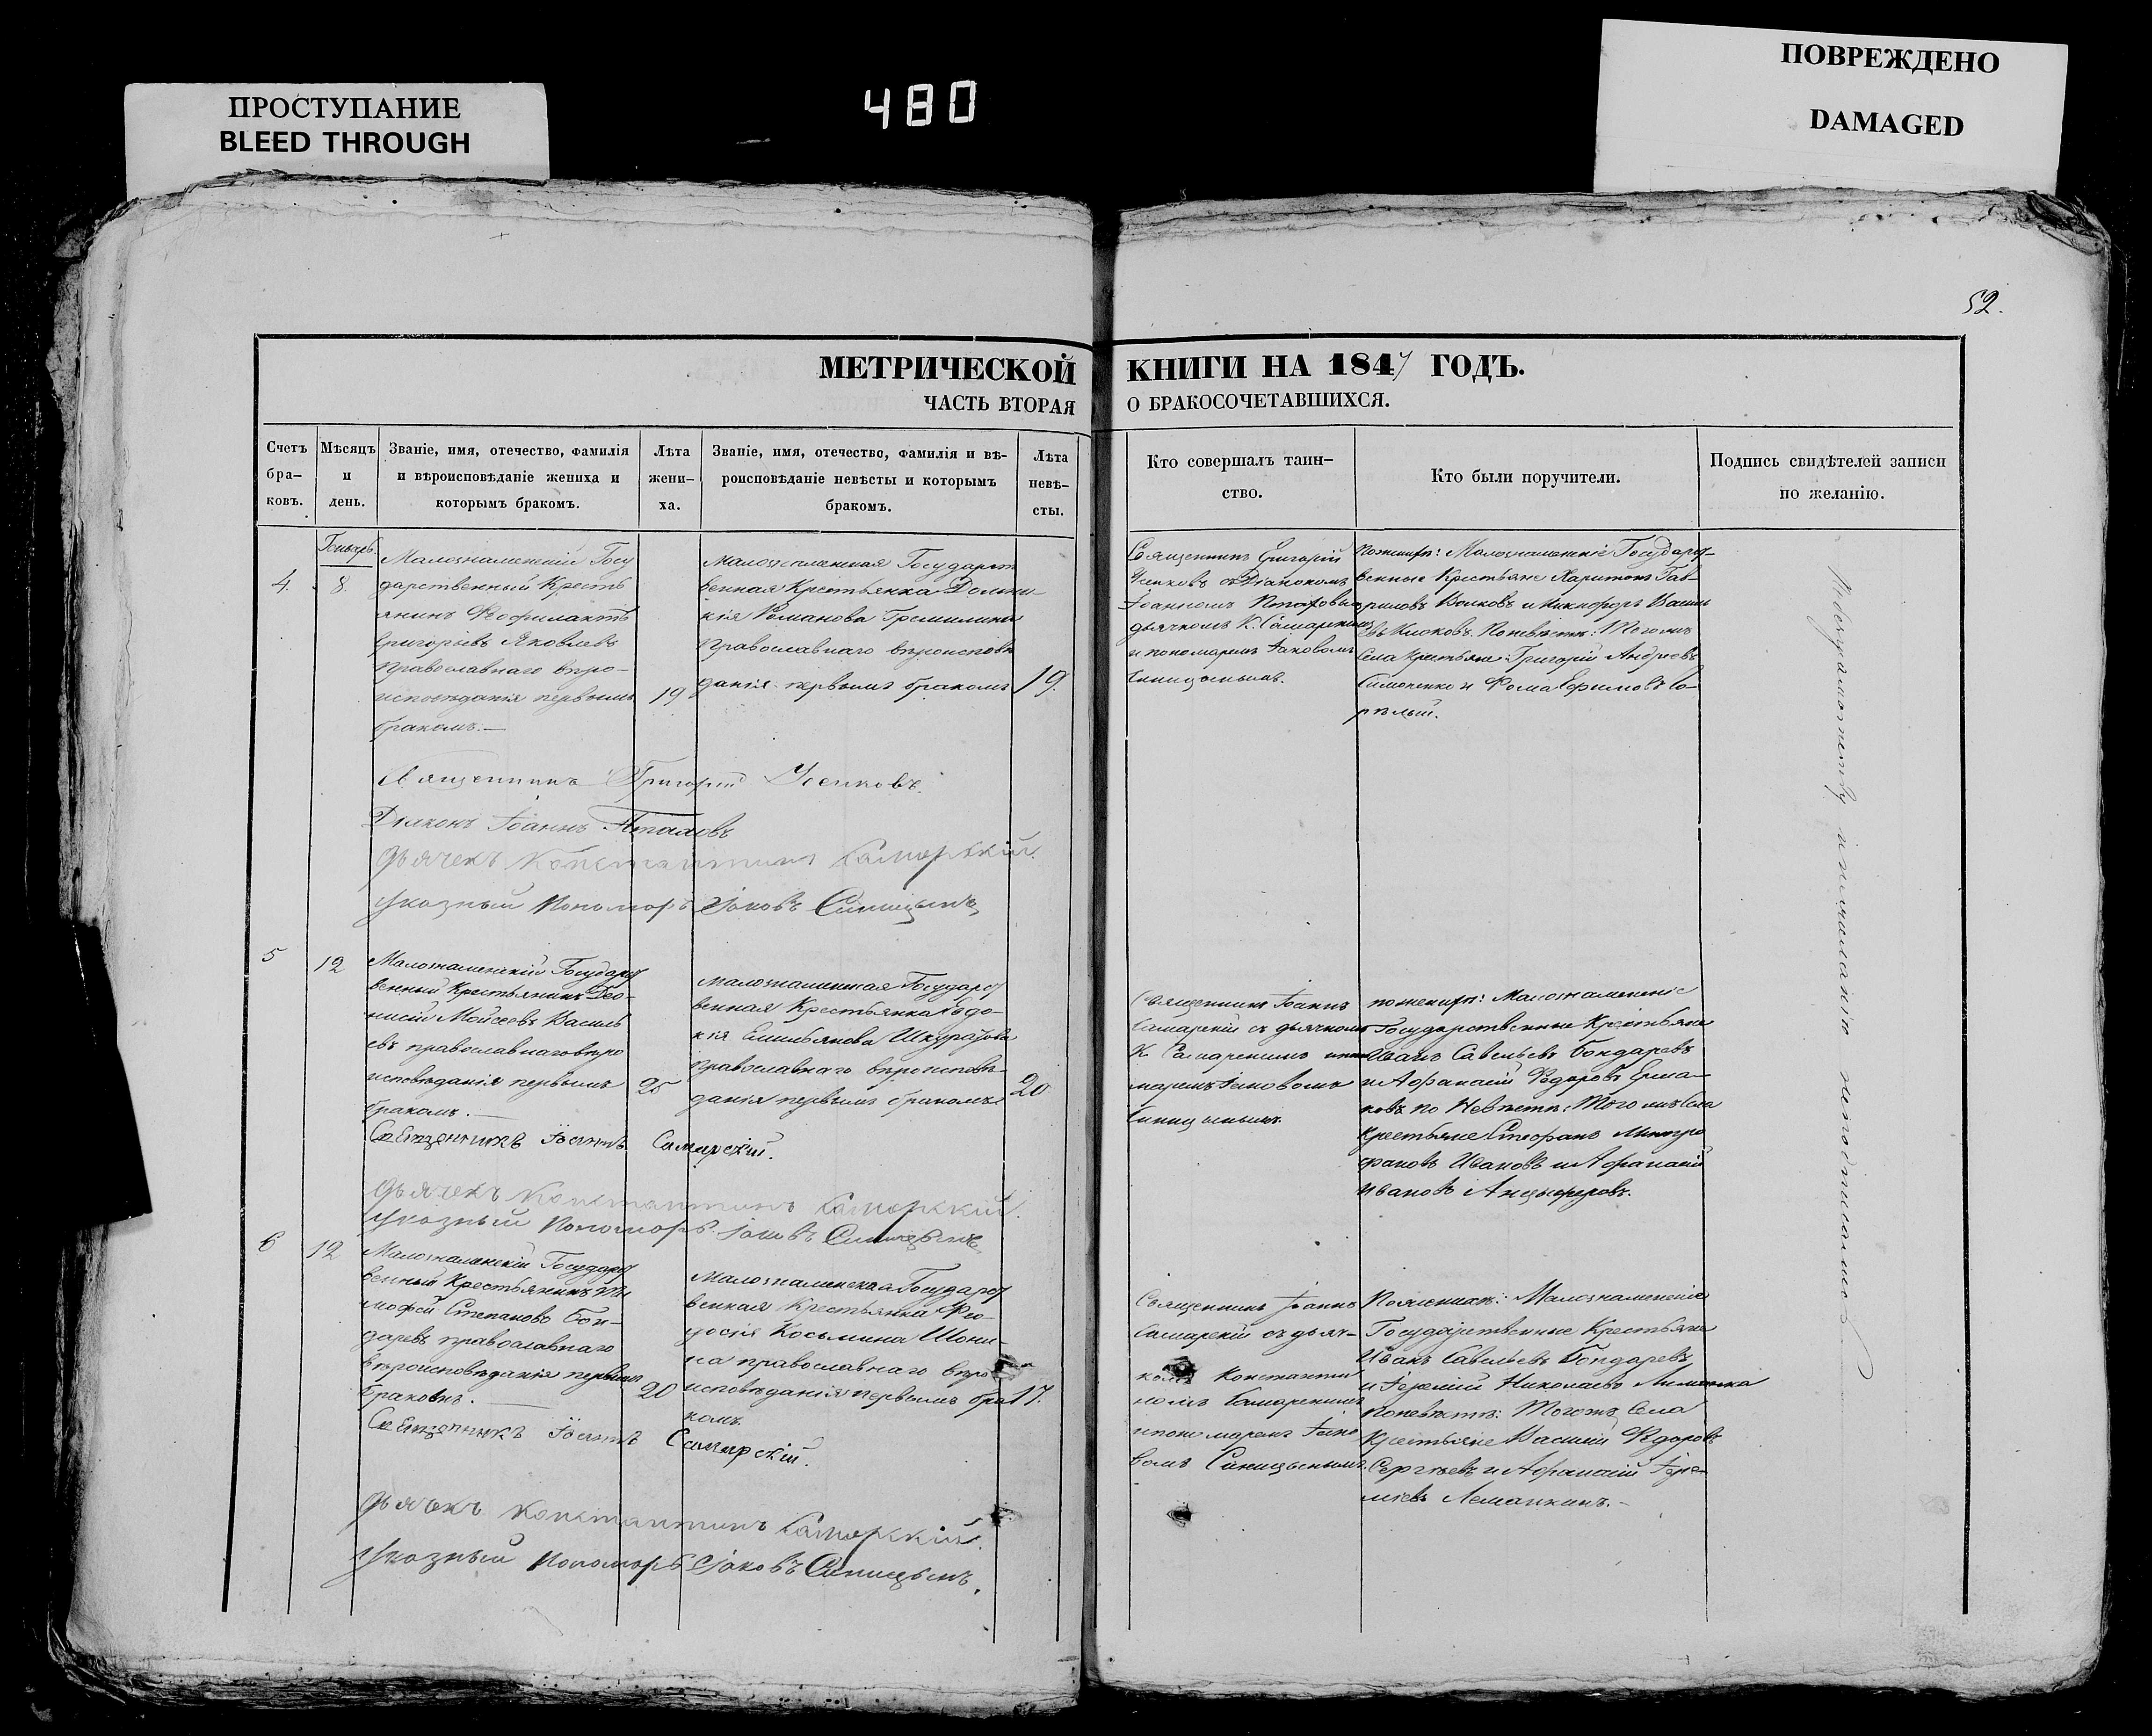 ПРОСТУПАНИЕ
BLEED THROUGH
480
ПОВРЕЖДЕНО
DAMAGED
52.
МЕТРИЧЕСКОЙ КНИГИ НА 1847 ГОДЪ.
ЧАСТЬ ВТОРАЯ О БРАКОСОЧЕТАВШИХСЯ.
Счетъ
бра-
ковъ.
Мѣсяцъ
и
день.
Званіе, имя, отечество, фамилія
и вѣроисповѣданіе жениха и
которымъ бракомъ.
Лѣта
жени-
ха.
Званіе, имя, отечество, фамилія и вѣ-
роисповѣданіе невѣсты и которымъ
бракомъ.
Лѣта
невѣ-
сты.
Кто совершалъ таин-
ство.
Кто были поручители.
Подпись свидѣтелей записи
по желанію.
4.
8.
Малознаменскій Госу
дарственный Кресть
янинъ Феофилактъ
Григорьевъ Яковлевъ
Православнаго вѣро-
исповѣданія первымъ
бракомъ.—
19
Малознаменская Государст
венная Крестьянка
Романова
Православнаго вѣроисповѣ
данія первымъ бракомъ
19.
Священникъ Григорій
Усенковъ съ Діакономъ
Іоанномъ
дьячкомъ К. Самарскимъ
и пономаремъ Іаковомъ
Синицынымъ.
Малознаменскіе Государст-
венные Крестьяне Харитонъ Гав-
риловъ Волковъ и Никифоръ Василь
евъ По невѣстѣ: Того жъ
Села Крестьяне: Григорій Андреевъ
Симоненко и Фома Ефимовъ Го-
рѣлый.
Священникъ Григорій Усенковъ.
Діаконъ Іоаннъ
Дьячекъ Константинъ Самарскій.
Указный Пономарь Іаковъ Синицынъ
5
12
Малознаменскій Государст
венный Крестьянинъ Діо-
нисій Мойсеевъ Василь
евъ православнаго вѣро
исповѣданія первымъ
бракомъ.—
25
Малознаменская Государст
венная Крестьянка Евдо-
кія Емильянова Шкуратова
православнаго вѣроисповѣ-
данія первымъ бракомъ
20
Священникъ Іоаннъ
Самарскій съ дьячкомъ
К. Самарскимъ и поно
маремъ Іаковомъ
Синицынымъ.
по женихѣ: Малознаменскіе
Государственные Крестьяне
Иванъ Савельевъ Бондаревъ
и Афанасій Федоровъ Ерма-
ковъ по Невѣстѣ: Того жъ Села
крестьяне Стефанъ Митро
фановъ Ивановъ и Афанасій
Ивановъ Анцыферовъ.
Священникъ Іоаннъ Самарскій.
Дьячекъ Константинъ Самарскій.
Указный Пономарь Іаковъ Синицынъ
6
12
Малознаменскій Государст
венный Крестьянинъ Ти
мофей Степановъ Бон-
даревъ православнаго
вѣроисповѣданія первымъ
бракомъ.—
20
Малознаменская Государст
венная Крестьянка Фео-
досія Косьмина Шони-
на православнаго вѣро
исповѣданія первымъ бра
комъ.
17.
Священникъ Іоаннъ
Самарскій съ дьяч-
комъ Константи
номъ Самарскимъ
и пономаремъ Іако
вомъ Синицынымъ.
По женихѣ: Малознаменскіе
Государственные Крестьяне
Иванъ Савельевъ Бондаревъ
и Іеремій Николаевъ
По невѣстѣ: Того жъ Села
Крестьяне Василій Федоровъ
Сергѣевъ и Афанасій Іере-
міевъ Леманкинъ.—
Священникъ Іоаннъ Самарскій.
Дьячекъ Константинъ Самарскій.
Указный Пономарь Іаковъ Синицынъ.